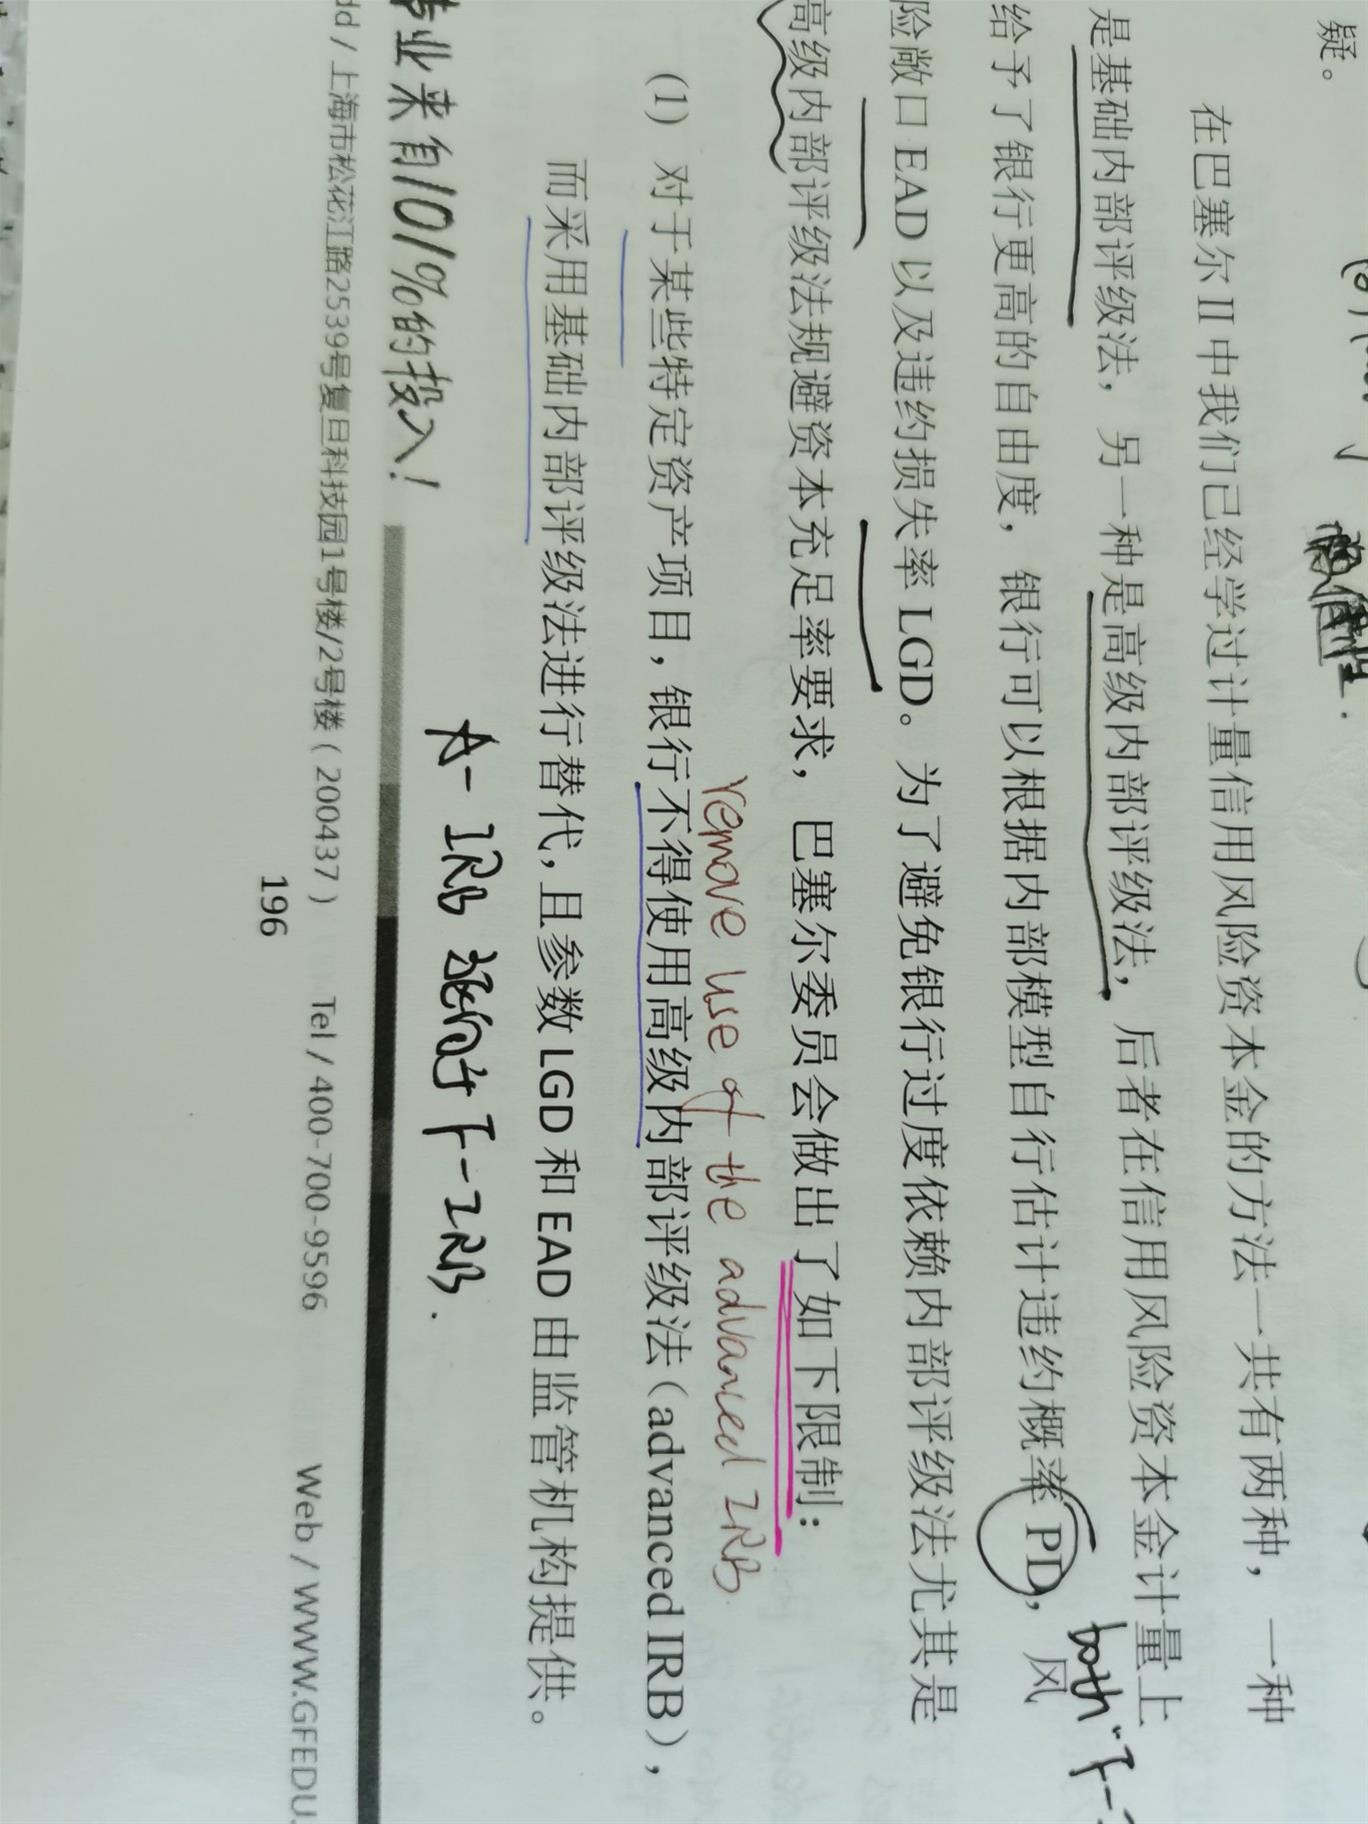 疑。
在巴塞尔 II 中我们已经学过计量信用风险资本金的方法一共有两种，一种
是基础内部评级法，另一种是高级内部评级法，后者在信用风险资本金计量上
both
给予了银行更高的自由度，银行可以根据内部模型自行估计违约概率 PD，风
险敞口 EAD 以及违约损失率 LGD。为了避免银行过度依赖内部评级法尤其是
高级内部评级法规避资本充足率要求，巴塞尔委员会做出了如下限制：
remove use of the advanced IRB.
(1) 对于某些特定资产项目，银行不得使用高级内部评级法（advanced IRB），
而采用基础内部评级法进行替代，且参数 LGD 和 EAD 由监管机构提供。
A-IRB F-IRB.
业来自101%的投入！
dd / 上海市松花江路2539号复旦科技园1号楼/2号楼（200437） Tel / 400-700-9596 Web / WWW.GFEDU.
196